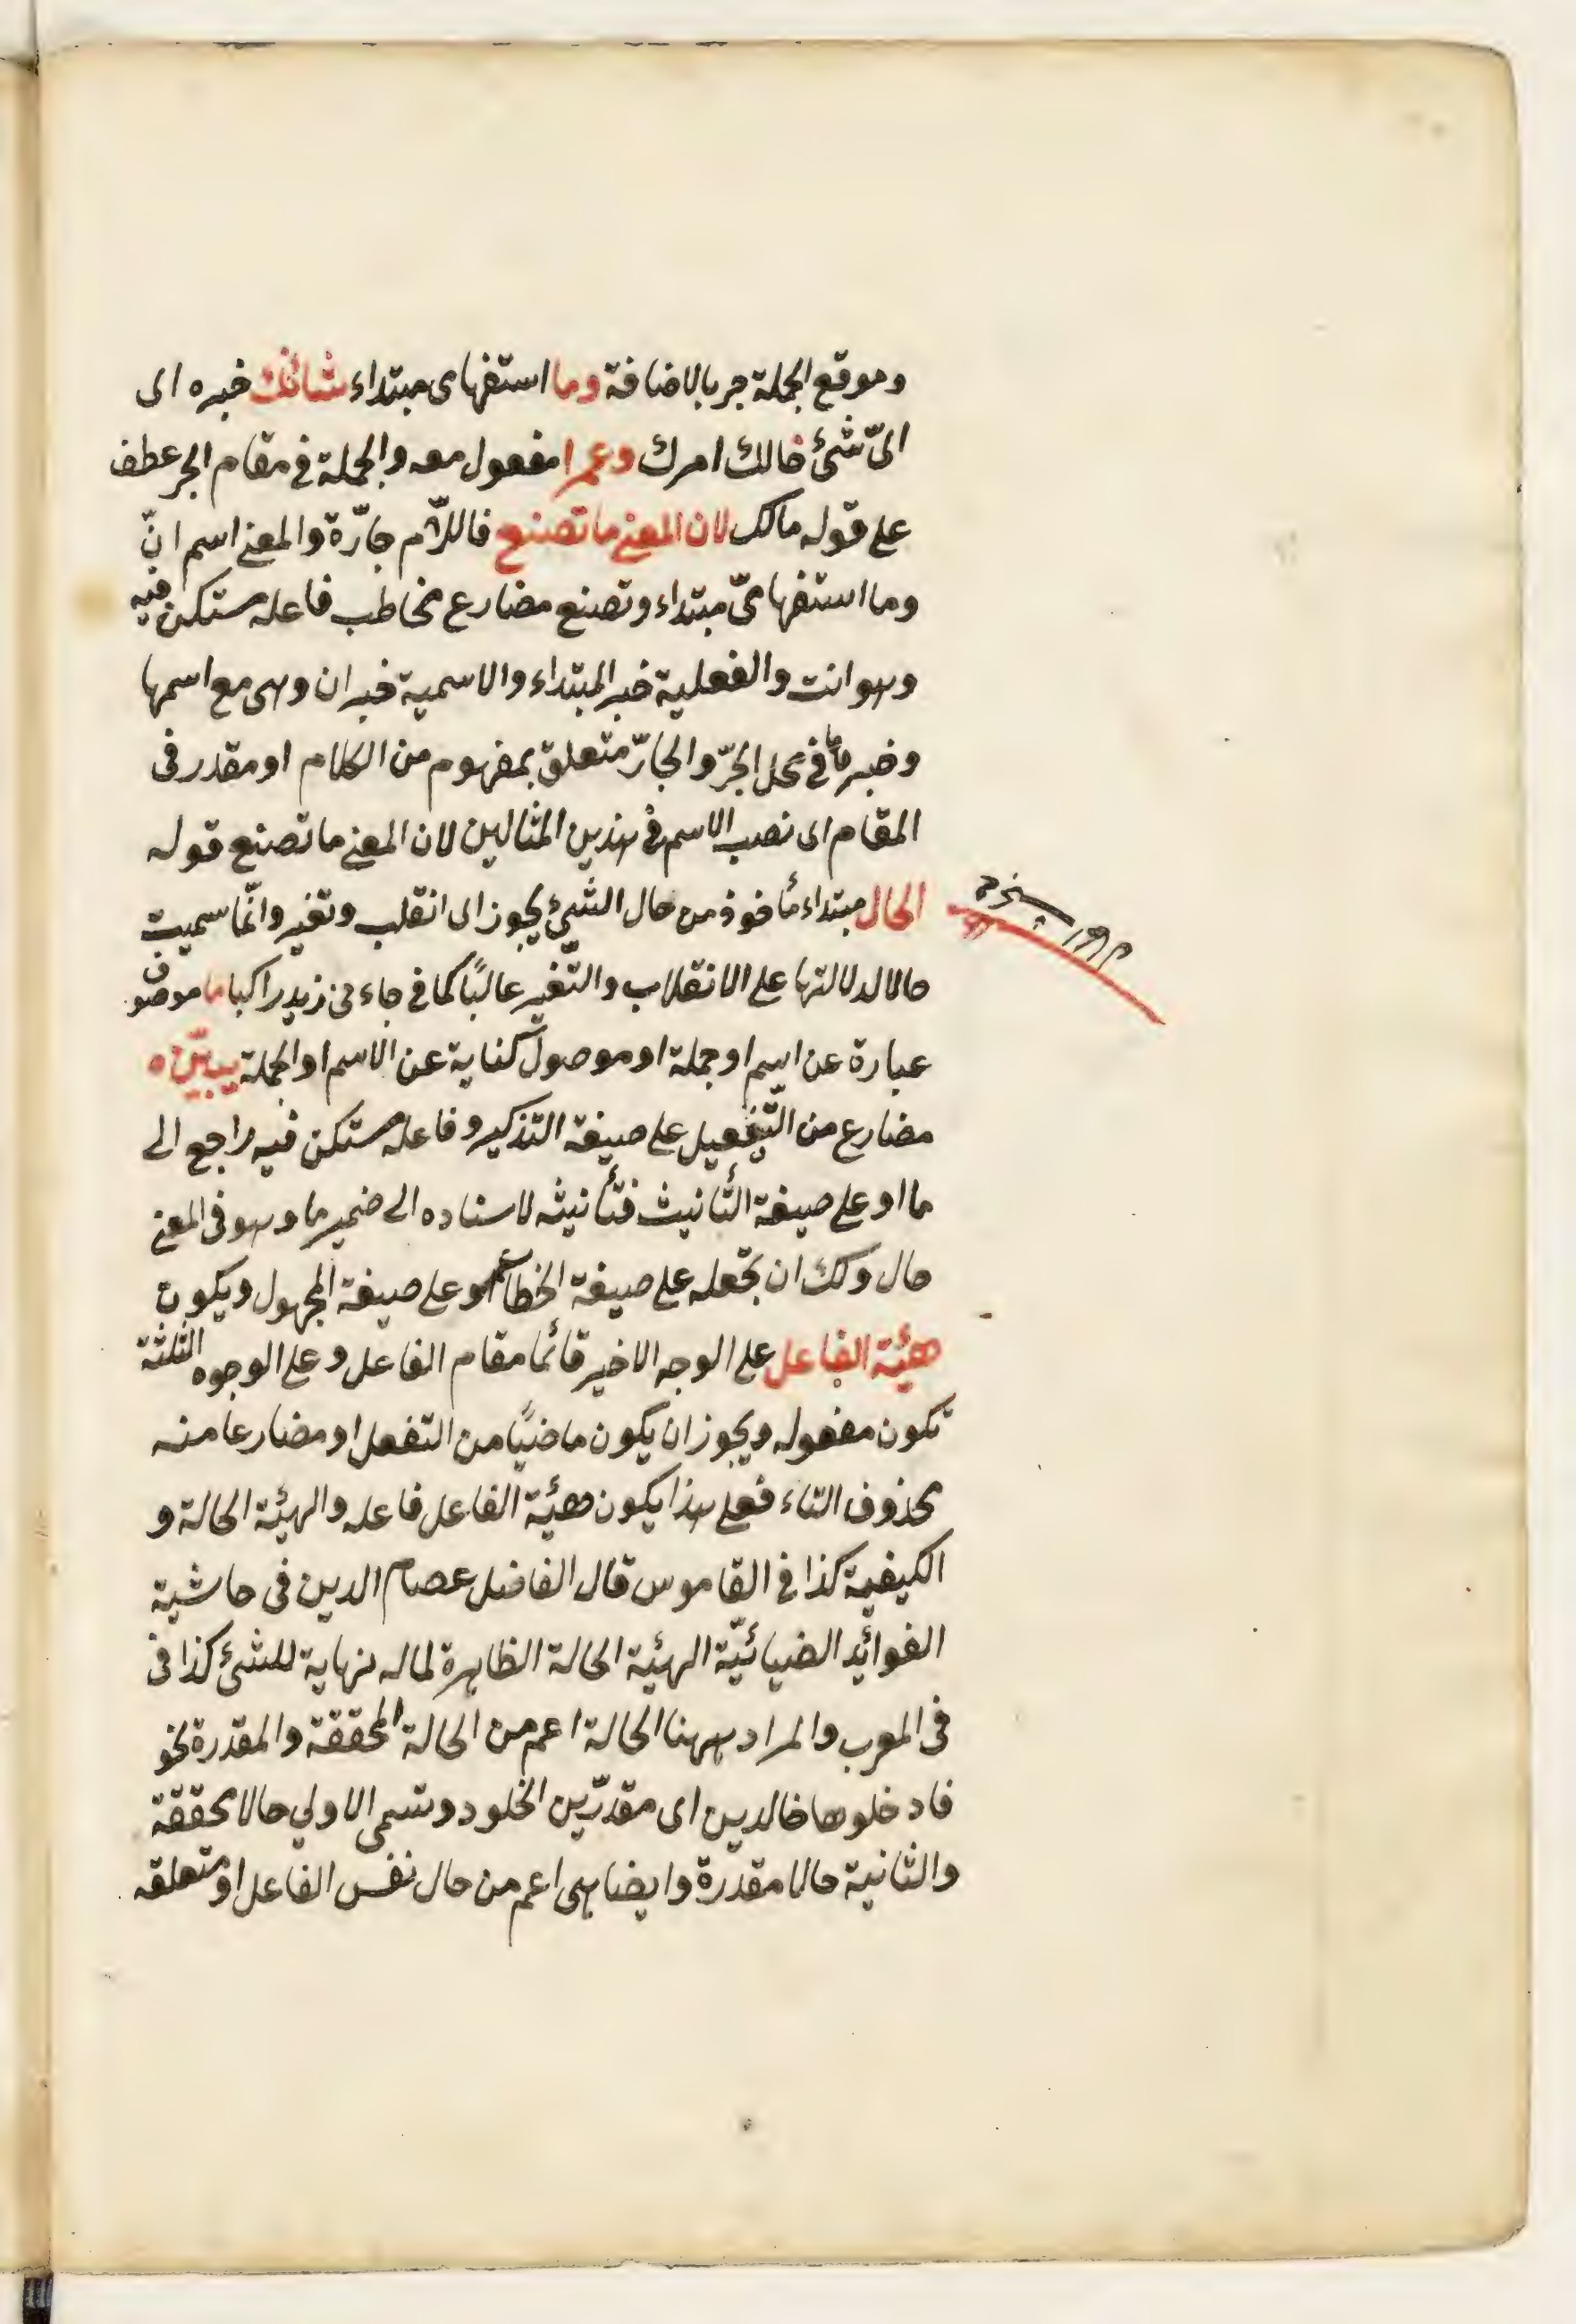 وموقع الجملة جر بالاضافة وما استفهامى مبتداء شانك خبره اى
اىّ شئ حالك امرك وعمرا مفعول معه والجملة فى مقام الجر عطف
على قوله مالك لان المعنى ما تصنع فاللّام جارّة والمعنى اسم انّ
وما استفهامىّ مبتداء وتصنع مضارع مخاطب فاعله مستكن فيه
وهو انت والفعلية خبر المبتداء والاسمية خبر ان وهى مع اسمها
وخبرها فى محل الجرّ والجارّ متعلق بمفهوم من الكلام او مقدر فى
المقام اى نصب الاسم فى هذين المثالين لان المعنى ما تصنع قوله
الحال مبتداء مأخوذ من حال الشئ يجوز اى انقلب وتغير وانّما سميت
حالا لدلالتها على الانقلاب والتّغير غالبًا كما فى جاءنى زيد راكبا ما موصوف
عبارة عن اسم او جملة او موصول كناية عن الاسم او الجملة يبيّن ه
مضارع من التّفعيل على صيغة التذكير وفاعله مستكن فيه راجع الى
ما او على صيغة التّأنيث فتأنيثه لاسناده الى ضمير ما وهو فى المعنى
حال ولك ان تجعله على صيغة الخطاب او على صيغة المجهول ويكون
هيئة الفاعل على الوجه الاخير قائما مقام الفاعل وعلى الوجوه الثلثة
تكون مفعوله ويجوز ان يكون ماضيًا من التفعل او مضارعا منه
محذوف التاء فعلى هذا يكون هيئة الفاعل فاعله والهيئة الحالة و
الكيفية كذا فى القاموس قال الفاضل عصام الدين فى حاشية
الفوائد الضيائيّة الهيئة الحالة الظاهرة لماله نهاية للشئ كذا فى
فى المعرب والمراد ههنا الحالة اعم من الحالة المحققة والمقدرة نحو
فادخلوها خالدين اى مقدّرين الخلود وتسمى الاولى حالا محققة
والثانية حالا مقدّرة وايضا هى اعم من حال نفس الفاعل او متعلقه